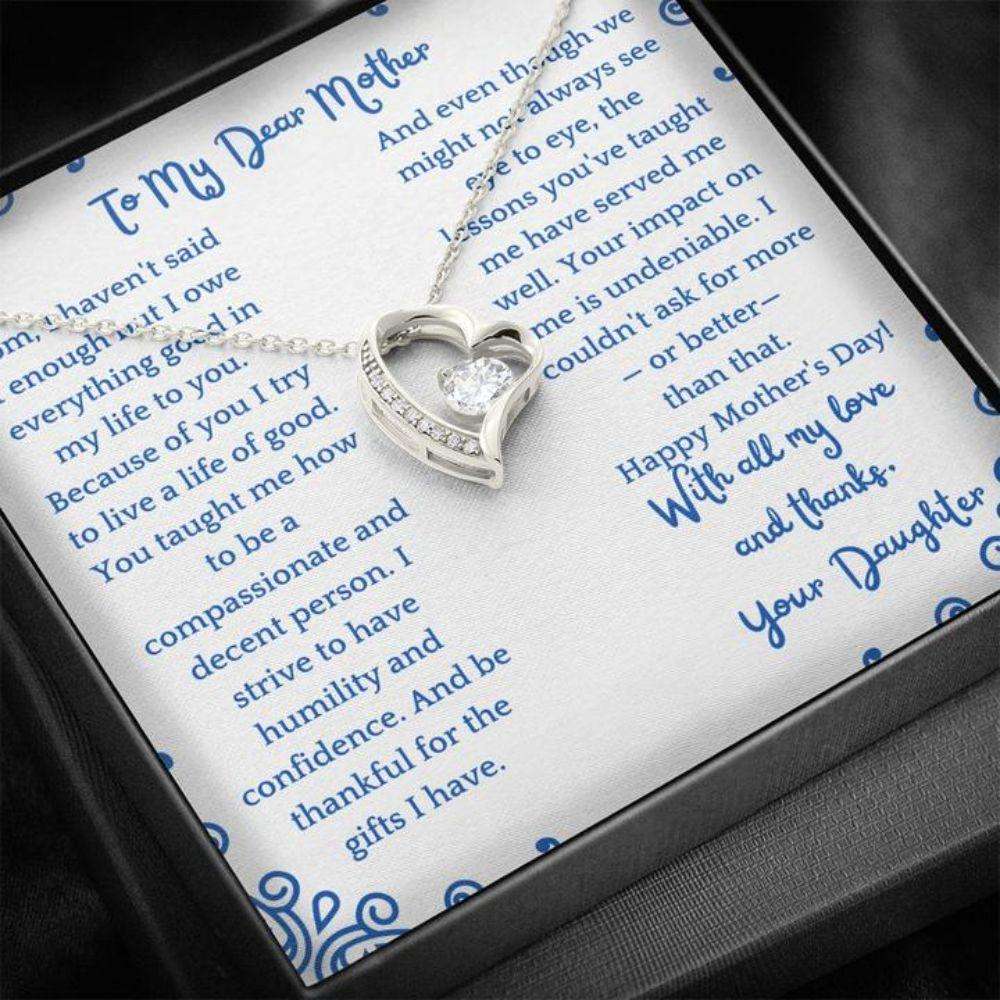 To My Dear Mother
I haven't said
enough but I owe
everything good in
my life to you.
Because of you I try
to live a life of good.
You taught me how
to be a
compassionate and
decent person. I
strive to have
humility and
confidence. And be
thankful for the
gifts I have.
And even though we
might not always see
eye to eye, the
lessons you've taught
me have served me
well. Your impact on
me is undeniable. I
couldn't ask for more
— or better—
than that.
Happy Mother's Day!
With all my love
and thanks,
Your Daughter